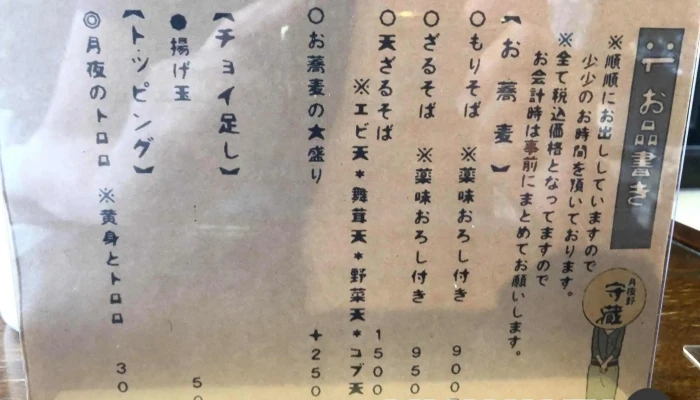 お品書き
※順順にお出ししていますので
少少のお時間を頂いております。
※全て税込価格となってますので
お会計時は事前にまとめてお願いします。
【お蕎麦】
○もりそば ※薬味おろし付き 900
○ざるそば ※薬味おろし付き 950
○天ざるそば 1500
※エビ天*舞茸天*野菜天*コブ天
○お蕎麦の大盛り +250
【チョイ足し】
●揚げ玉 50
【トッピング】
◎月夜のトロロ ※黄身とトロロ 30
月夜野
守蔵